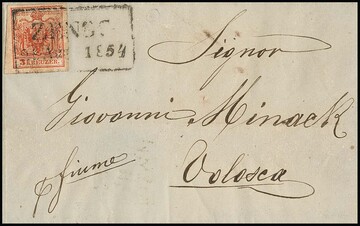 ZENGG
1854
3 KREUZER
Signor
Giovanni Minack
p fiume
Volosca